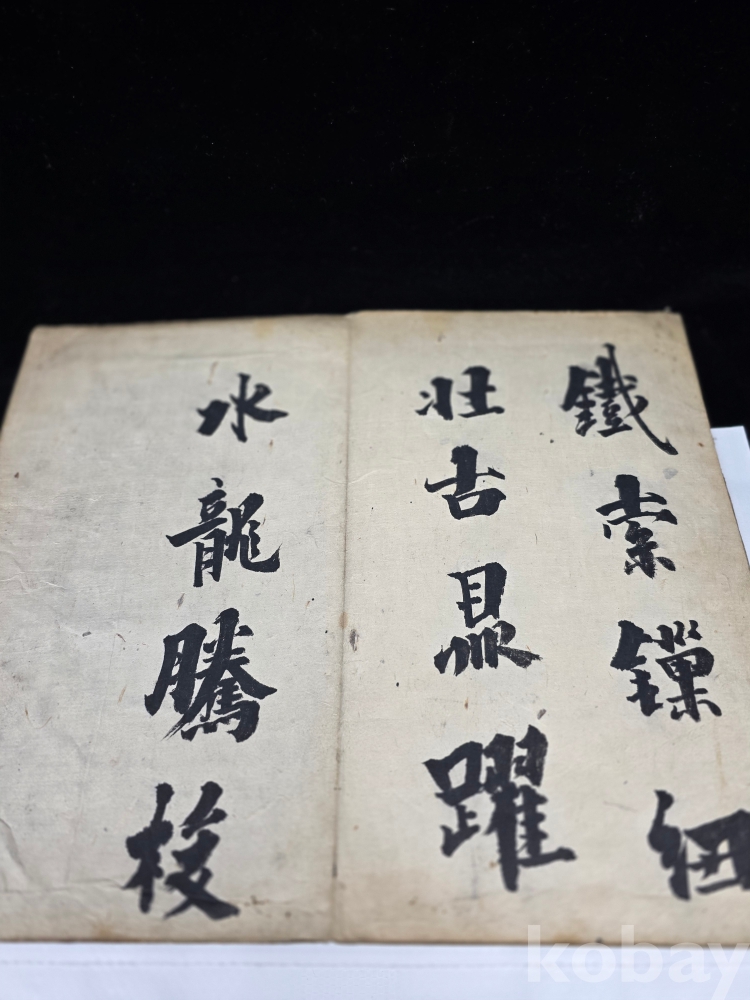 鐵索鏁紐
壯古鼎躍
水龍騰梭
kobay